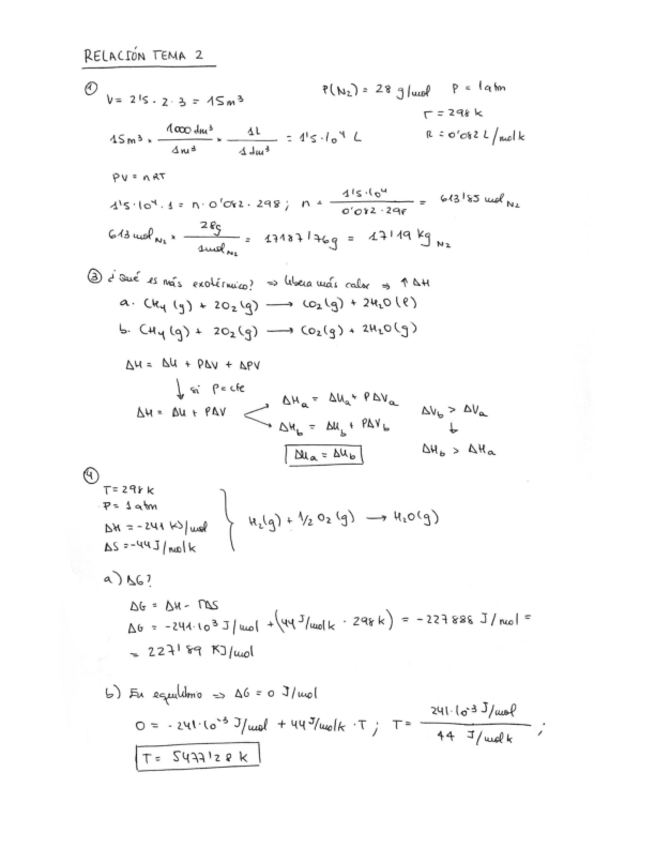 RELACIÓN TEMA 2
① V = 2'5 · 2 · 3 = 15 m³
P(N₂) = 28 g/mol P = 1 atm
T = 298 K
15 m³ × 1000 dm³ / 1 m³ × 1L / 1 dm³ = 1'5·10⁴ L
R = 0'082 L/molK
PV = nRT
1'5·10⁴ · 1 = n · 0'082 · 298 ; n = 1'5·10⁴ / 0'082 · 298 = 613'85 mol N₂
613 mol N₂ × 28g / 1 mol N₂ = 17187'76g = 17'19 Kg N₂
③ ¿Qué es más exotérmico? ⇒ libera más calor ⇒ ↑ΔH
a. CH₄ (g) + 2O₂ (g) ⟶ CO₂ (g) + 2H₂O (l)
b. CH₄ (g) + 2O₂ (g) ⟶ CO₂ (g) + 2H₂O (g)
ΔH = ΔU + PΔV + ΔPV
↓ si P = cte
ΔH = ΔU + PΔV
ΔHₐ = ΔUₐ + PΔVₐ
ΔH_b = ΔU_b + PΔV_b
ΔUₐ = ΔU_b
ΔV_b > ΔVₐ
↓
ΔH_b > ΔHₐ
④
T = 298 K
P = 1 atm
ΔH = -241 KJ/mol
ΔS = -44 J/molK
H₂ (g) + 1/2 O₂ (g) ⟶ H₂O (g)
a) ΔG?
ΔG = ΔH - TΔS
ΔG = -241·10³ J/mol + (44 J/molK · 298 K) = -227888 J/mol =
= 227'89 KJ/mol
b) En equilibrio ⇒ ΔG = 0 J/mol
0 = -241·10⁻³ J/mol + 44 J/molK · T ; T = 241·10⁻³ J/mol / 44 J/molK ;
T = 5477'28 K